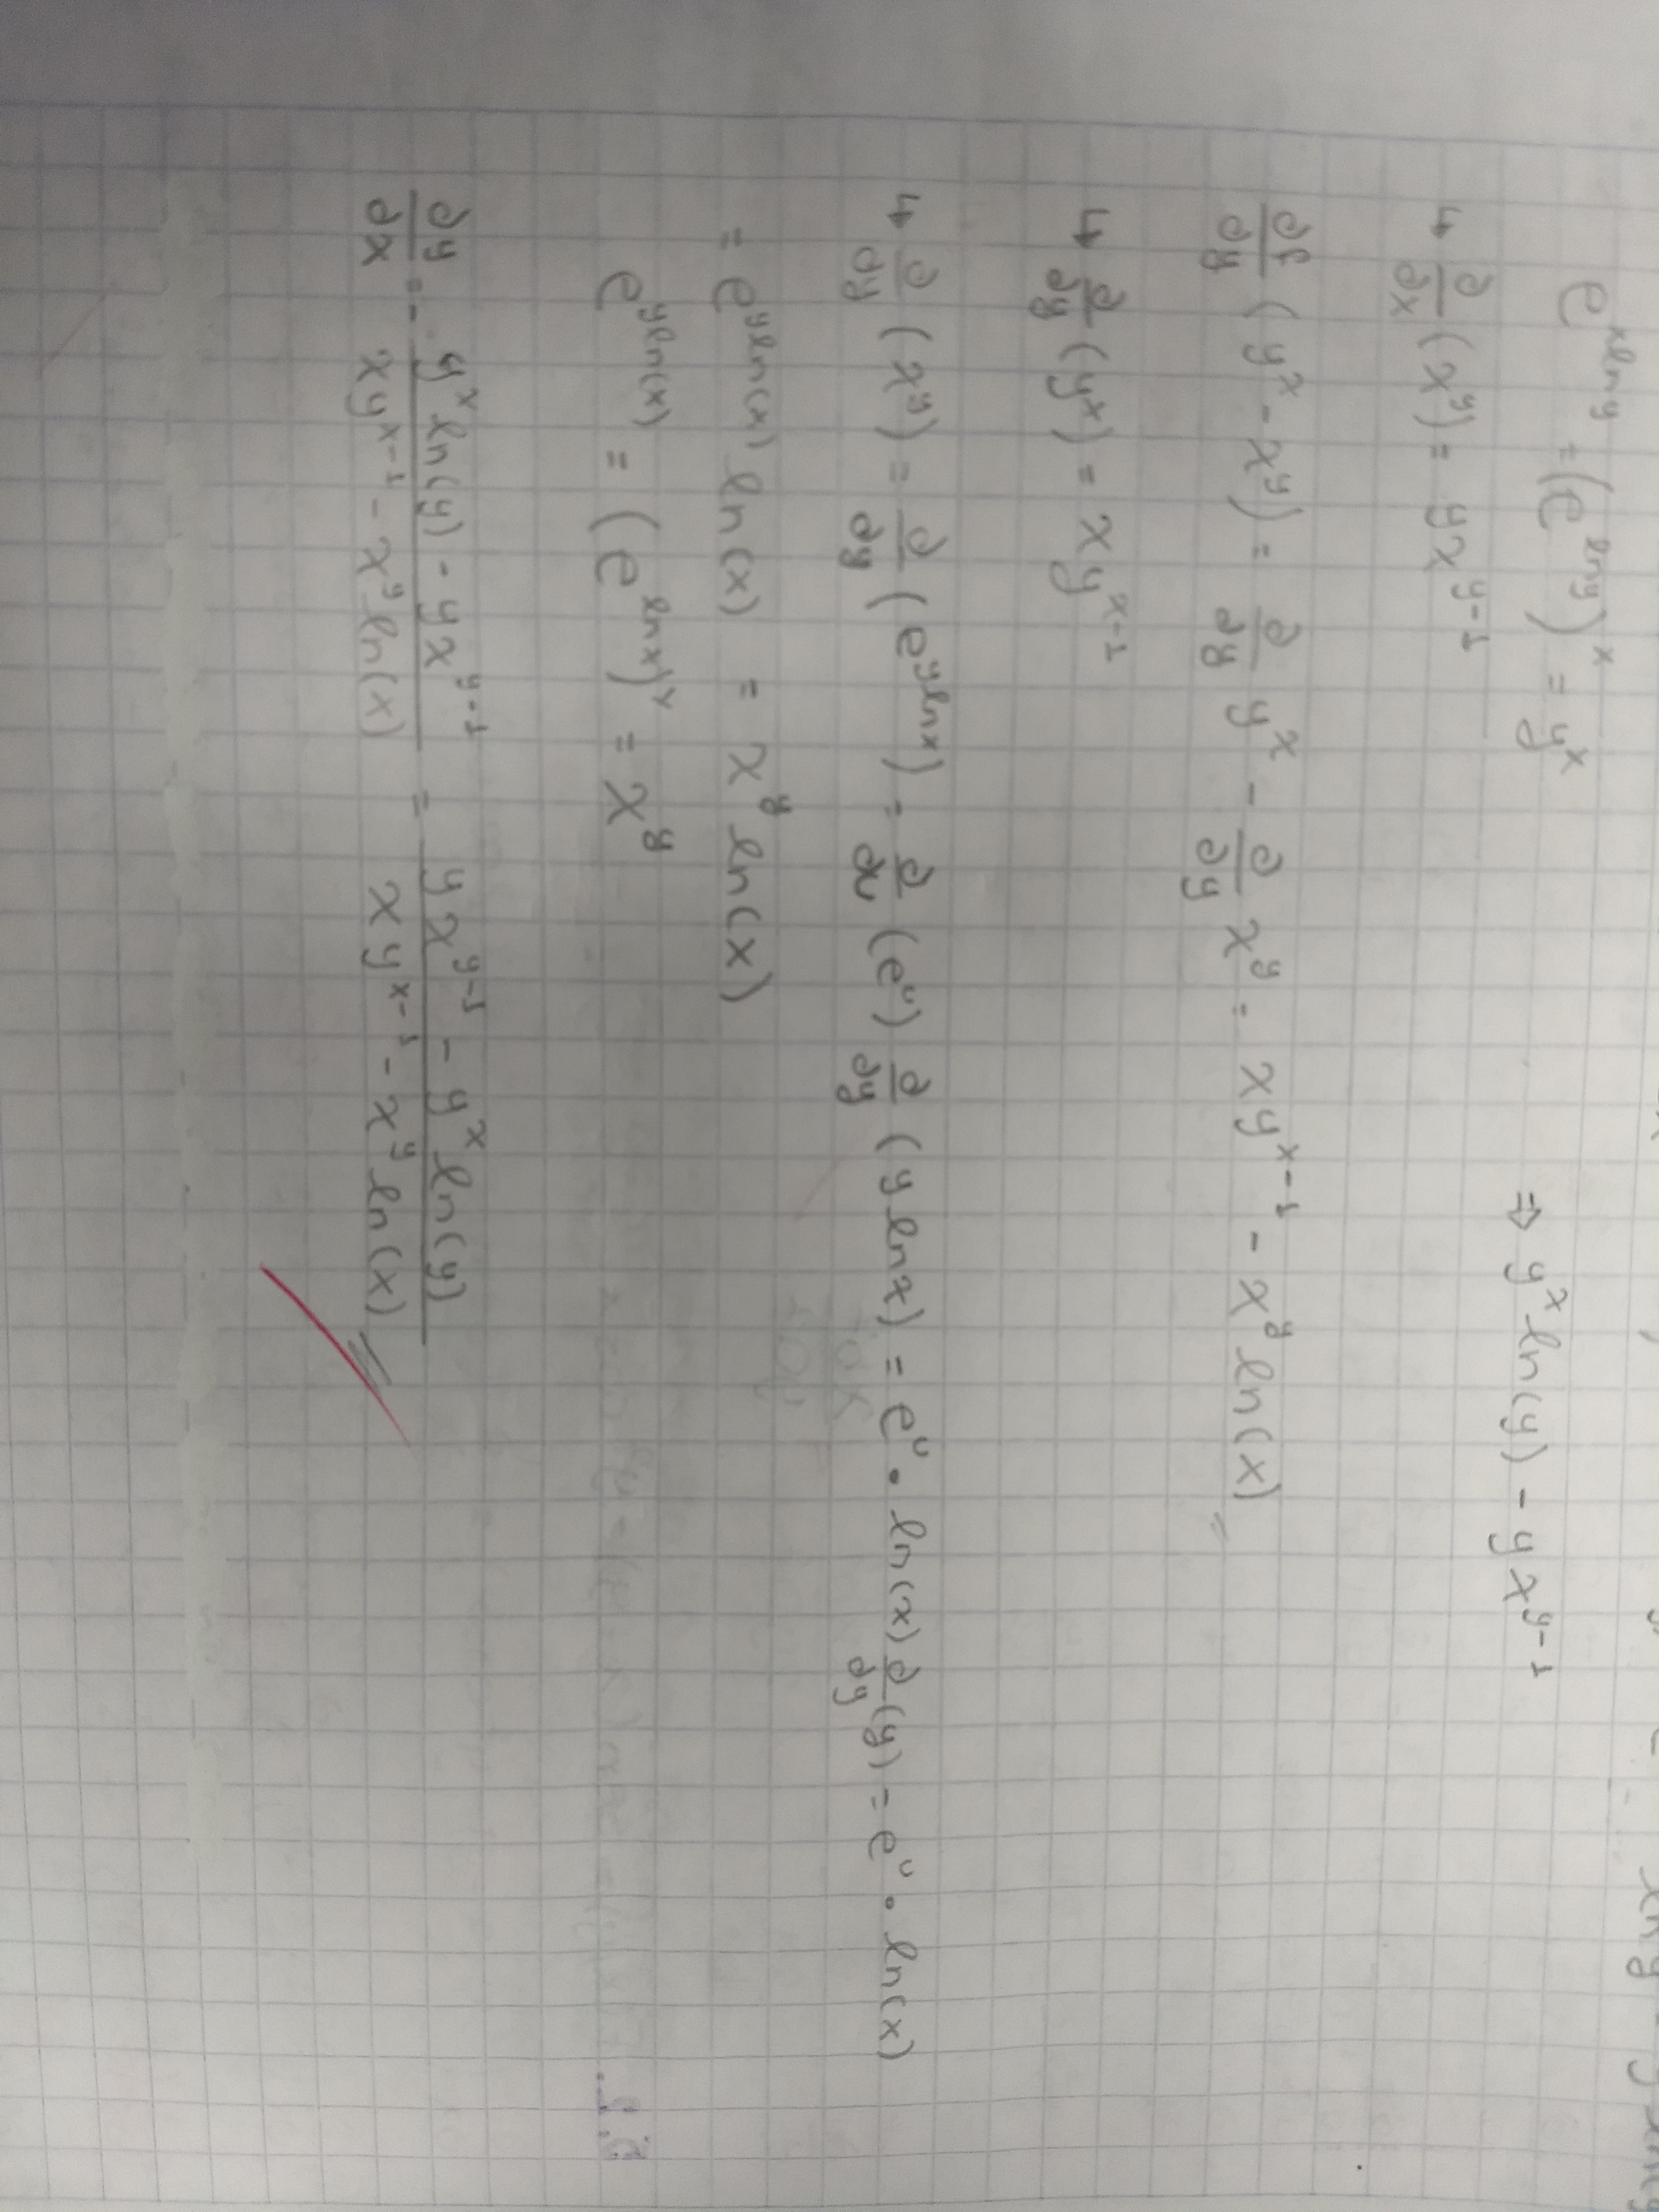 e^{x ln y} = (e^{ln y})^x = y^x
⇒ y^x ln(y) - y x^{y-1}
↳ ∂/∂x (x^y) = y x^{y-1}
∂f/∂y (y^x - x^y) = ∂/∂y y^x - ∂/∂y x^y = x y^{x-1} - x^y ln(x)
↳ ∂/∂y (y^x) = x y^{x-1}
↳ ∂/∂y (x^y) = ∂/∂y (e^{y ln x}) = ∂/∂u (e^u) ∂/∂y (y ln x) = e^u • ln(x) ∂/∂y (y) = e^u • ln(x)
= e^{y ln(x)} ln(x) = x^y ln(x)
e^{y ln(x)} = (e^{ln x})^y = x^y
∂y/∂x = - (y^x ln(y) - y x^{y-1}) / (x y^{x-1} - x^y ln(x)) = (y x^{y-1} - y^x ln(y)) / (x y^{x-1} - x^y ln(x))